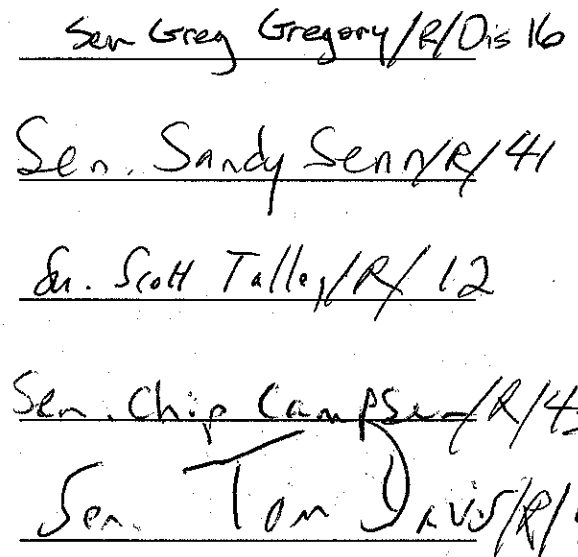 Sen Greg Gregory/R/Dis 16
Sen. Sandy Senn/R/41
Sen. Scott Talley/R/12
Sen. Chip Campsen/R/43
Sen. Tom Davis/R/